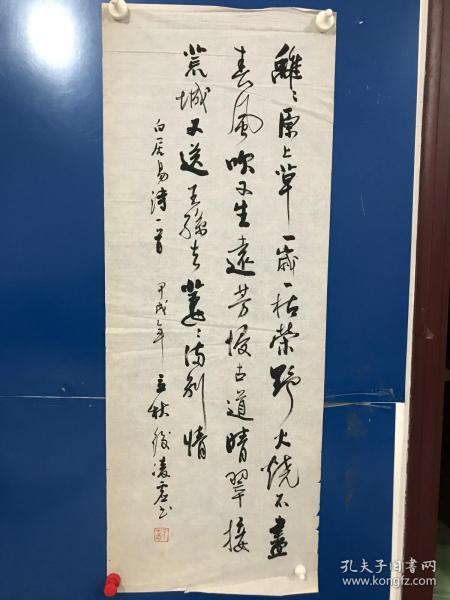 離〻原上草一歲一枯榮野火燒不盡
春風吹又生遠芳侵古道晴翠接
荒城又送王孫去萋〻滿別情
白居易詩一首 甲戌年立秋後凌
孔夫子旧书网
www.kongfz.com